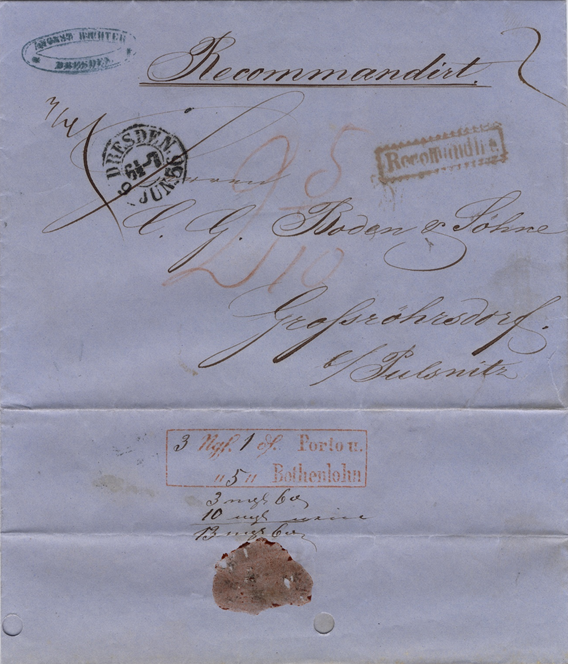 RICHTER
DRESDEN
Recommandirt.
DRESDEN
JUN. 56
Recommandirt.
Herrn
C. G. Boden & Söhne
Grossröhrsdorf.
b/ Pulsnitz
3 Ngf. 1 df. Porto u.
" 5 " Bothenlohn
3 ngl 6
10 ngl
13 ngl 6